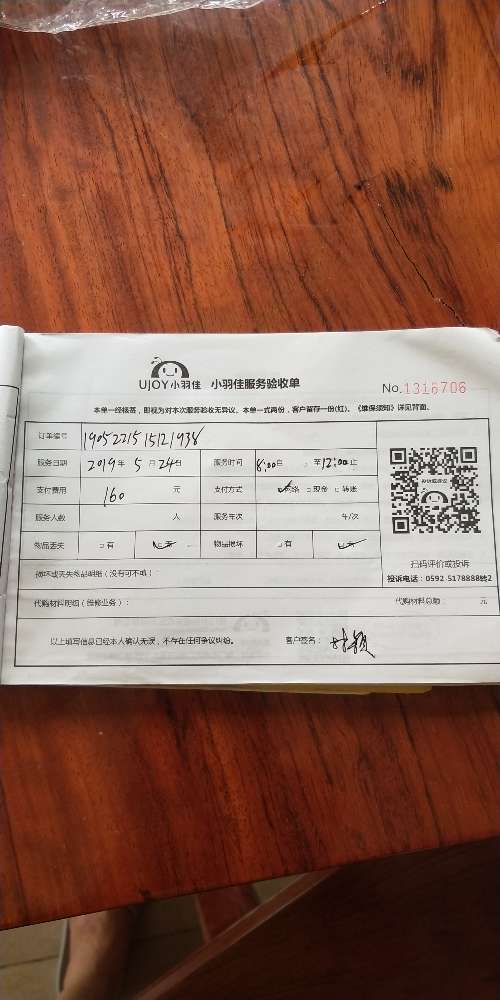 UJOY小羽佳 小羽佳服务验收单
No.1316706
本单一经接签，即视为对本次服务验收无异议。本单一式两份，客户留存一份(红)。《维保须知》详见背面。
订单编号 1905221515121938
服务日期 2019年5月24日 服务时间 8:00自 至12:00止
支付费用 160 元 支付方式 ☑网络 □现金 □转账
服务人数 人 服务车次 车/次
物品丢失 □有 ☑无 物品损坏 □有 ☑无
扫码评价或投诉
投诉电话：0592-5178888转2
损坏或丢失物品明细（没有可不填）：
代购材料明细（维修业务）： 代购材料总额： 元
以上填写信息已经本人确认无误，不存在任何争议纠纷。 客户签名：